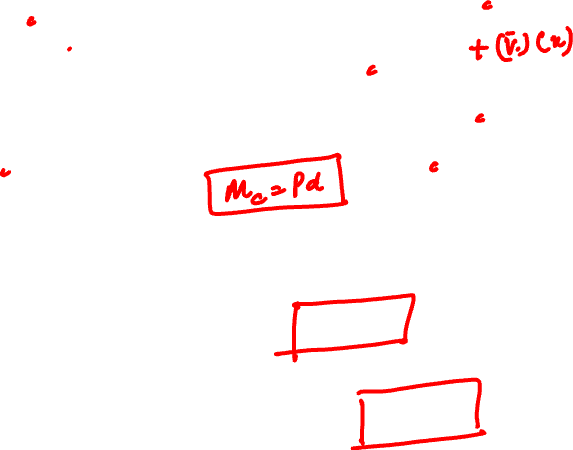 + (V̄.) (x)
M_c = Pd